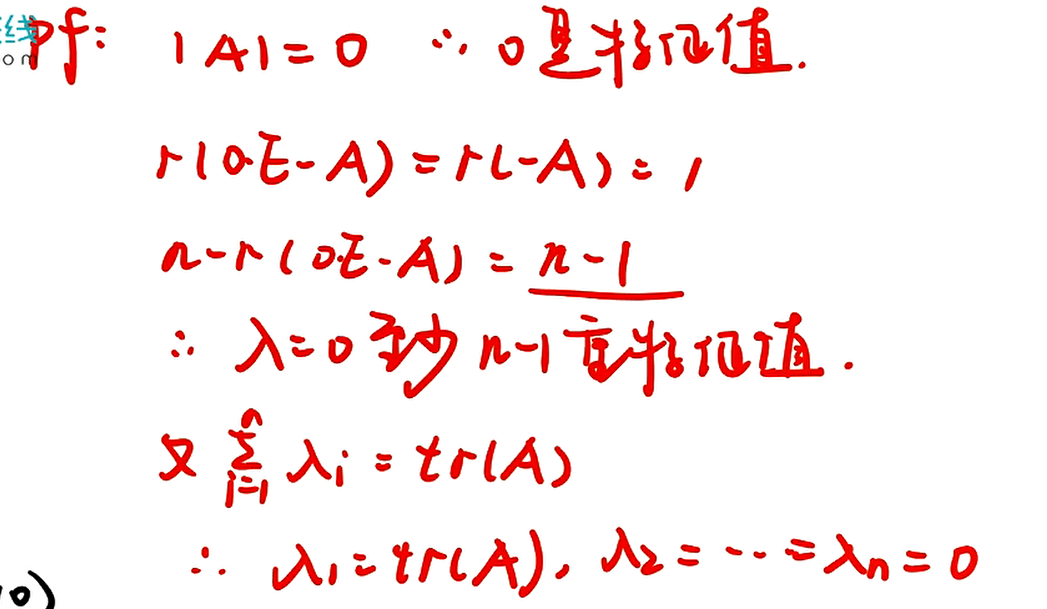 线
om
pf: |A|=0 ∴ 0是特征值.
r(0·E-A)=r(-A)=1
n-r(0·E-A)=n-1
∴ λ=0至少n-1重特征值.
又 ∑_{i=1}^{n} λi = tr(A)
∴ λ1=tr(A), λ2=…=λn=0
0)